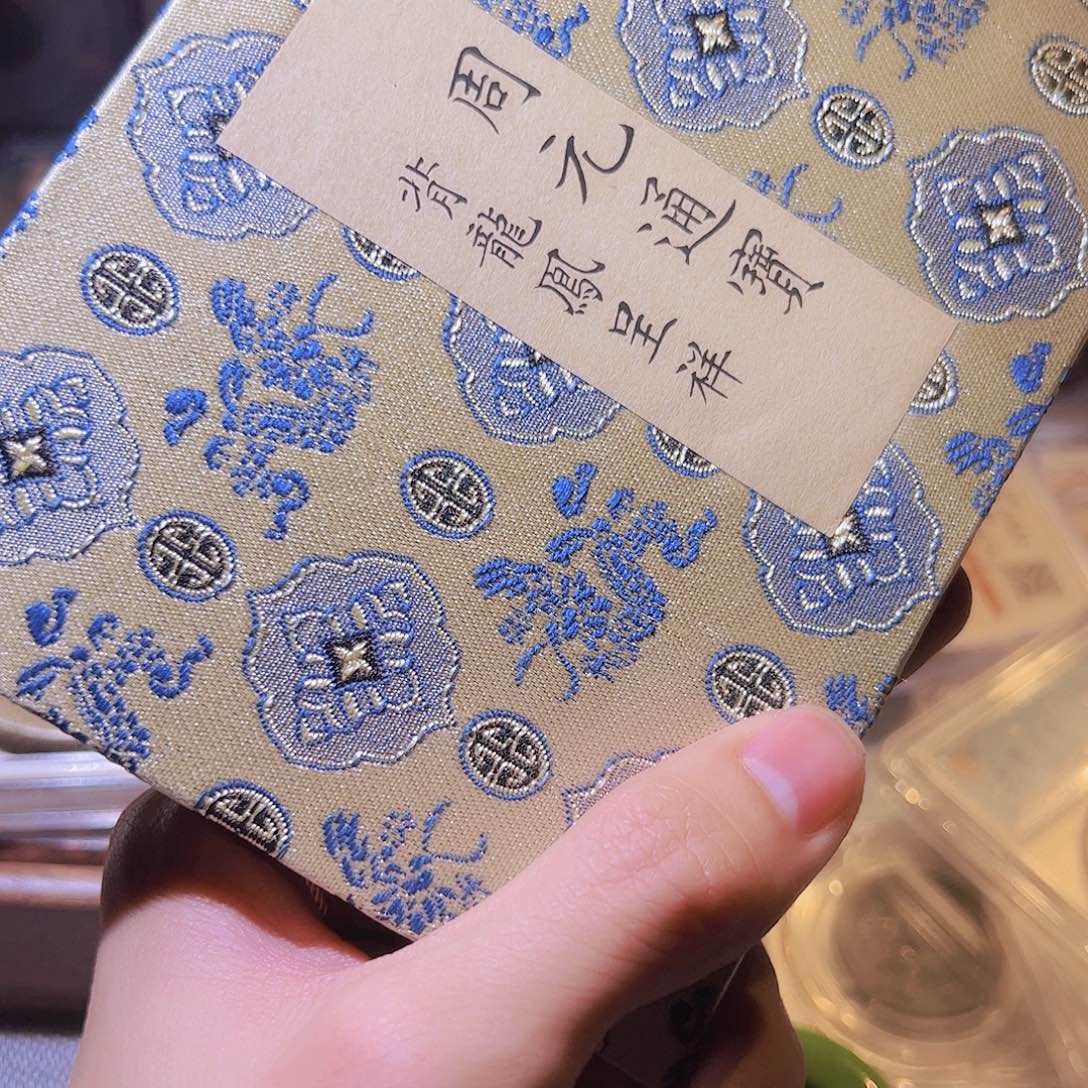 周元通寶
背龍鳳呈祥